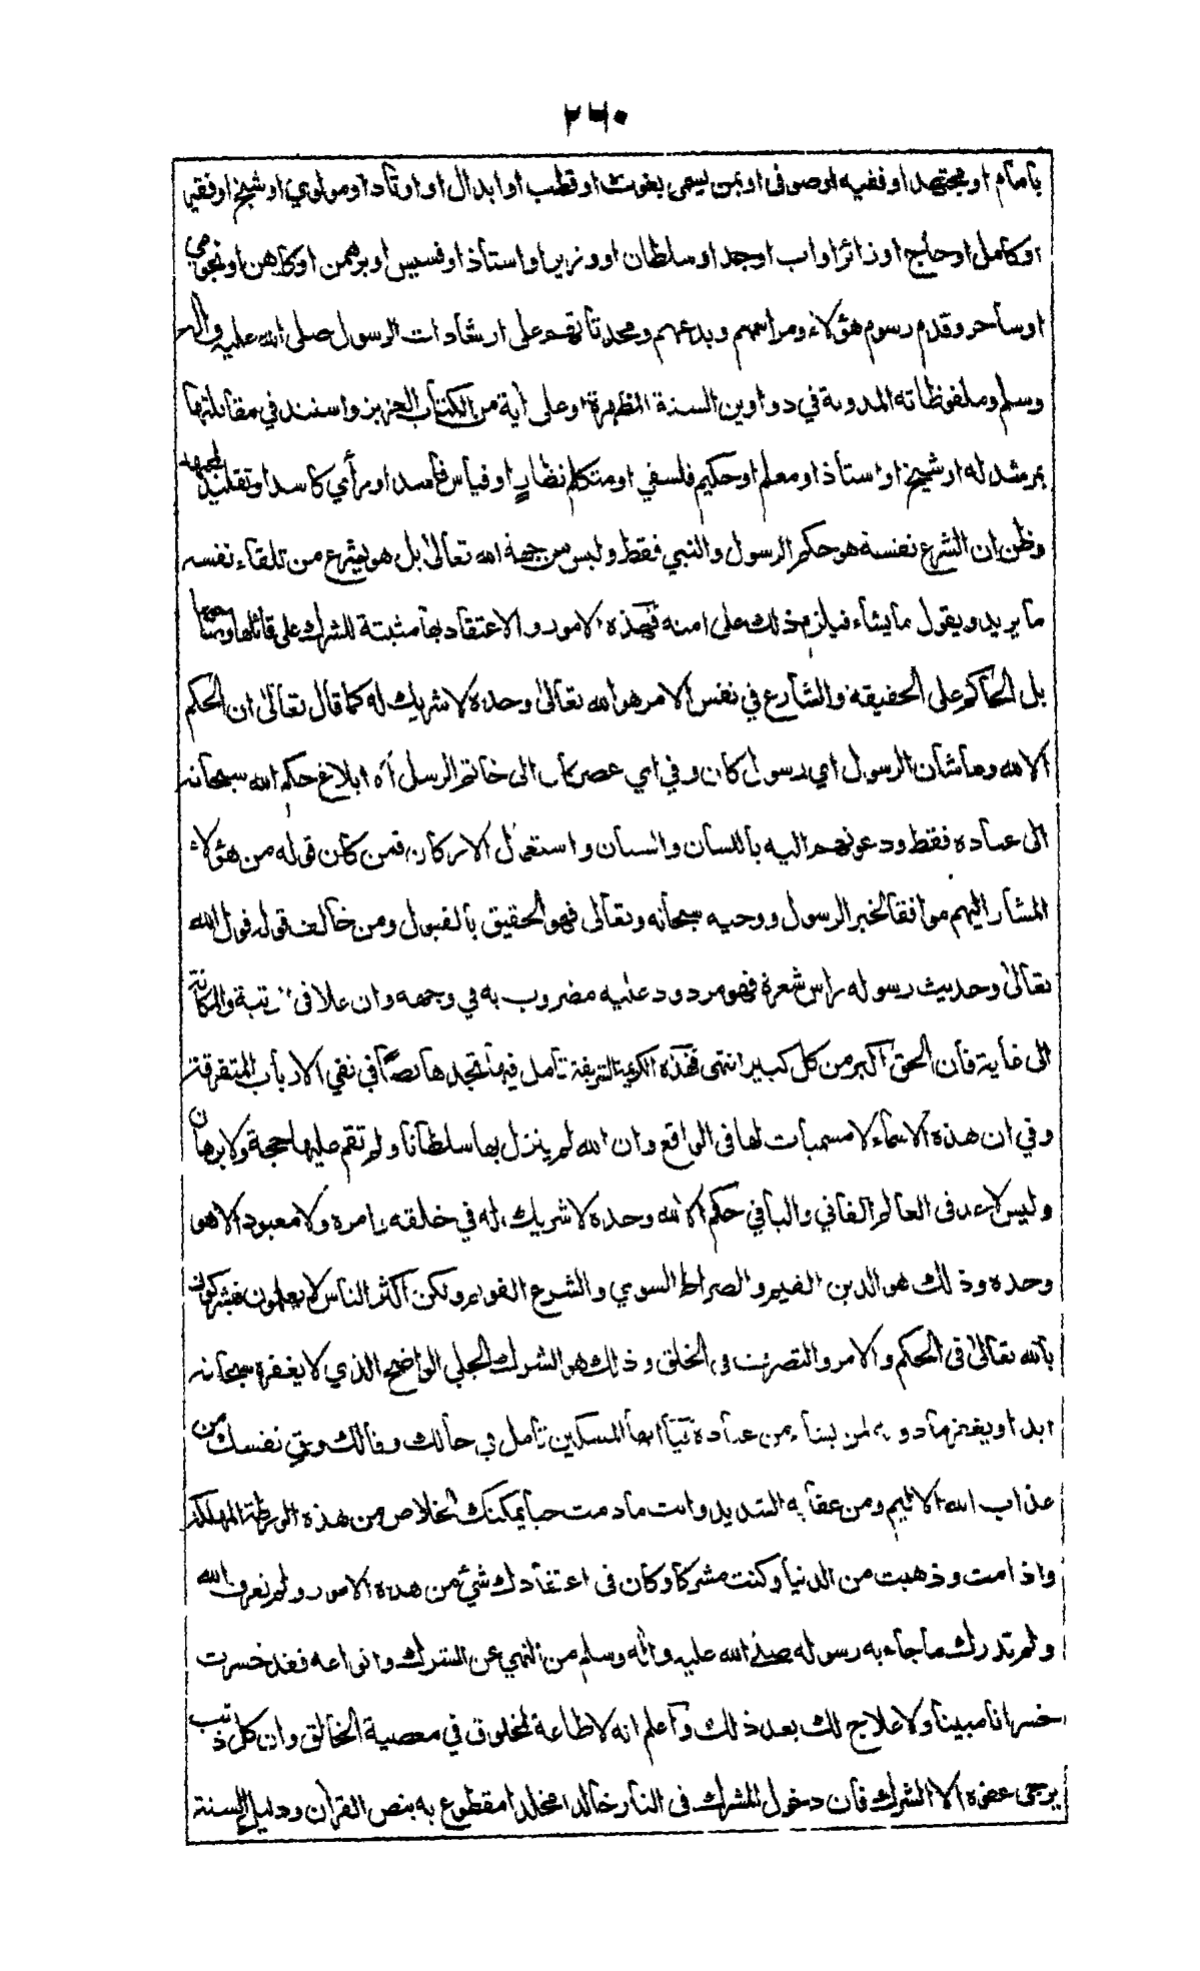 ٢٦٠
بامام او مجتهد او فقيه او صوفي او بمن يسمى بغوث او قطب او ابدال او اوتاد او مولوي او شيخ او فقير
او كامل او حاج او زائر او اب او جد او سلطان او وزير او استاذ او قسيس او برهمن او كاهن او نجومي
او ساحر وقدم رسوم هؤلاء ومراسمهم وبدعهم ومحدثاتهم على ارشادات الرسول صلى الله عليه واله
وسلم وملفوظاته المدونة في دواوين السنة المطهرة او على اية من الكتاب العزيز واستند في مقابلتها
بمرشد له او شيخ او استاذ او معلم او حكيم فلسفي او متكلم نظار او قياس فاسد او رأي كاسد او تقليد لمجتهد
وظن ان الشرع نفسه هو حكم الرسول والنبي فقط وليس من جهة الله تعالى بل هو يشرع من تلقاء نفسه
ما يريد ويقول ما يشاء فيلزم ذلك على امته فهذه الامور والاعتقاد بها مثبتة للشرك على قائلها
بل الحاكم على الحقيقة والشارع في نفس الامر هو الله تعالى وحده لا شريك له كما قال تعالى ان الحكم
الا لله وما شان الرسول اي رسول كان وفي اي عصر كان الى خاتم الرسل الا ابلاغ حكم الله سبحانه
الى عباده فقط ودعوتهم اليه باللسان والسنان واستعمال الاركان فمن كان قوله من هؤلاء
المشار اليهم موافقا لخبر الرسول ووحيه سبحانه وتعالى فهو الحقيق بالقبول ومن خالف قوله قول الله
تعالى وحديث رسوله راس شعرة فهو مردود عليه مضروب به في وجهه وان علا في الرتبة والمكانة
الى غاية فان الحق اكبر من كل كبير انتهى فهذه الكريمة الشريفة تأمل فيها تجدها نصا في نفي الارباب المتفرقة
وفي ان هذه الاسماء لا مسميات لها في الواقع وان الله لم ينزل بها سلطانا ولم تقم عليها حجة ولا برهان
وليس لاحد في العالم الفاني والباقي حكم الا لله وحده لا شريك له في خلقه وامره ولا معبود الا هو
وحده وذلك هو الدين القيم والصراط السوي والشرع القويم ولكن اكثر الناس لا يعلمون فيشركون
بالله تعالى في الحكم والامر والتصرف في الخلق وذلك هو الشرك الجلي الواضح الذي لا يغفره سبحانه
ابدا ويغفر ما دونه لمن يشاء من عباده فيا ايها المسكين تأمل في حالك ومالك وق نفسك من
عذاب الله الاليم ومن عقابه الشديد وانت ما دمت حيا يمكنك الخلاص من هذه الورطة المهلكة
واذا مت وذهبت من الدنيا وكنت مشركا وكان في اعتقادك شيء من هذه الامور ولم تعرف الله
ولم تدرك ما جاء به رسوله صلى الله عليه واله وسلم من النهي عن الشرك وانواعه فقد خسرت
خسرانا مبينا ولا علاج لك بعد ذلك واعلم انه لا طاعة لمخلوق في معصية الخالق وان كل ذنب
يرجى عفوه الا الشرك فان دخول المشرك في النار خالدا مخلدا مقطوع به بنص القران ودليل السنة